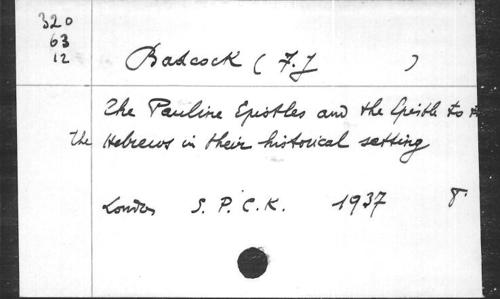 320
63
12
Badcock ( F. J )
The Pauline Epistles and the Epistle to
the Hebrews in their historical setting
London S. P. C. K. 1937 8.